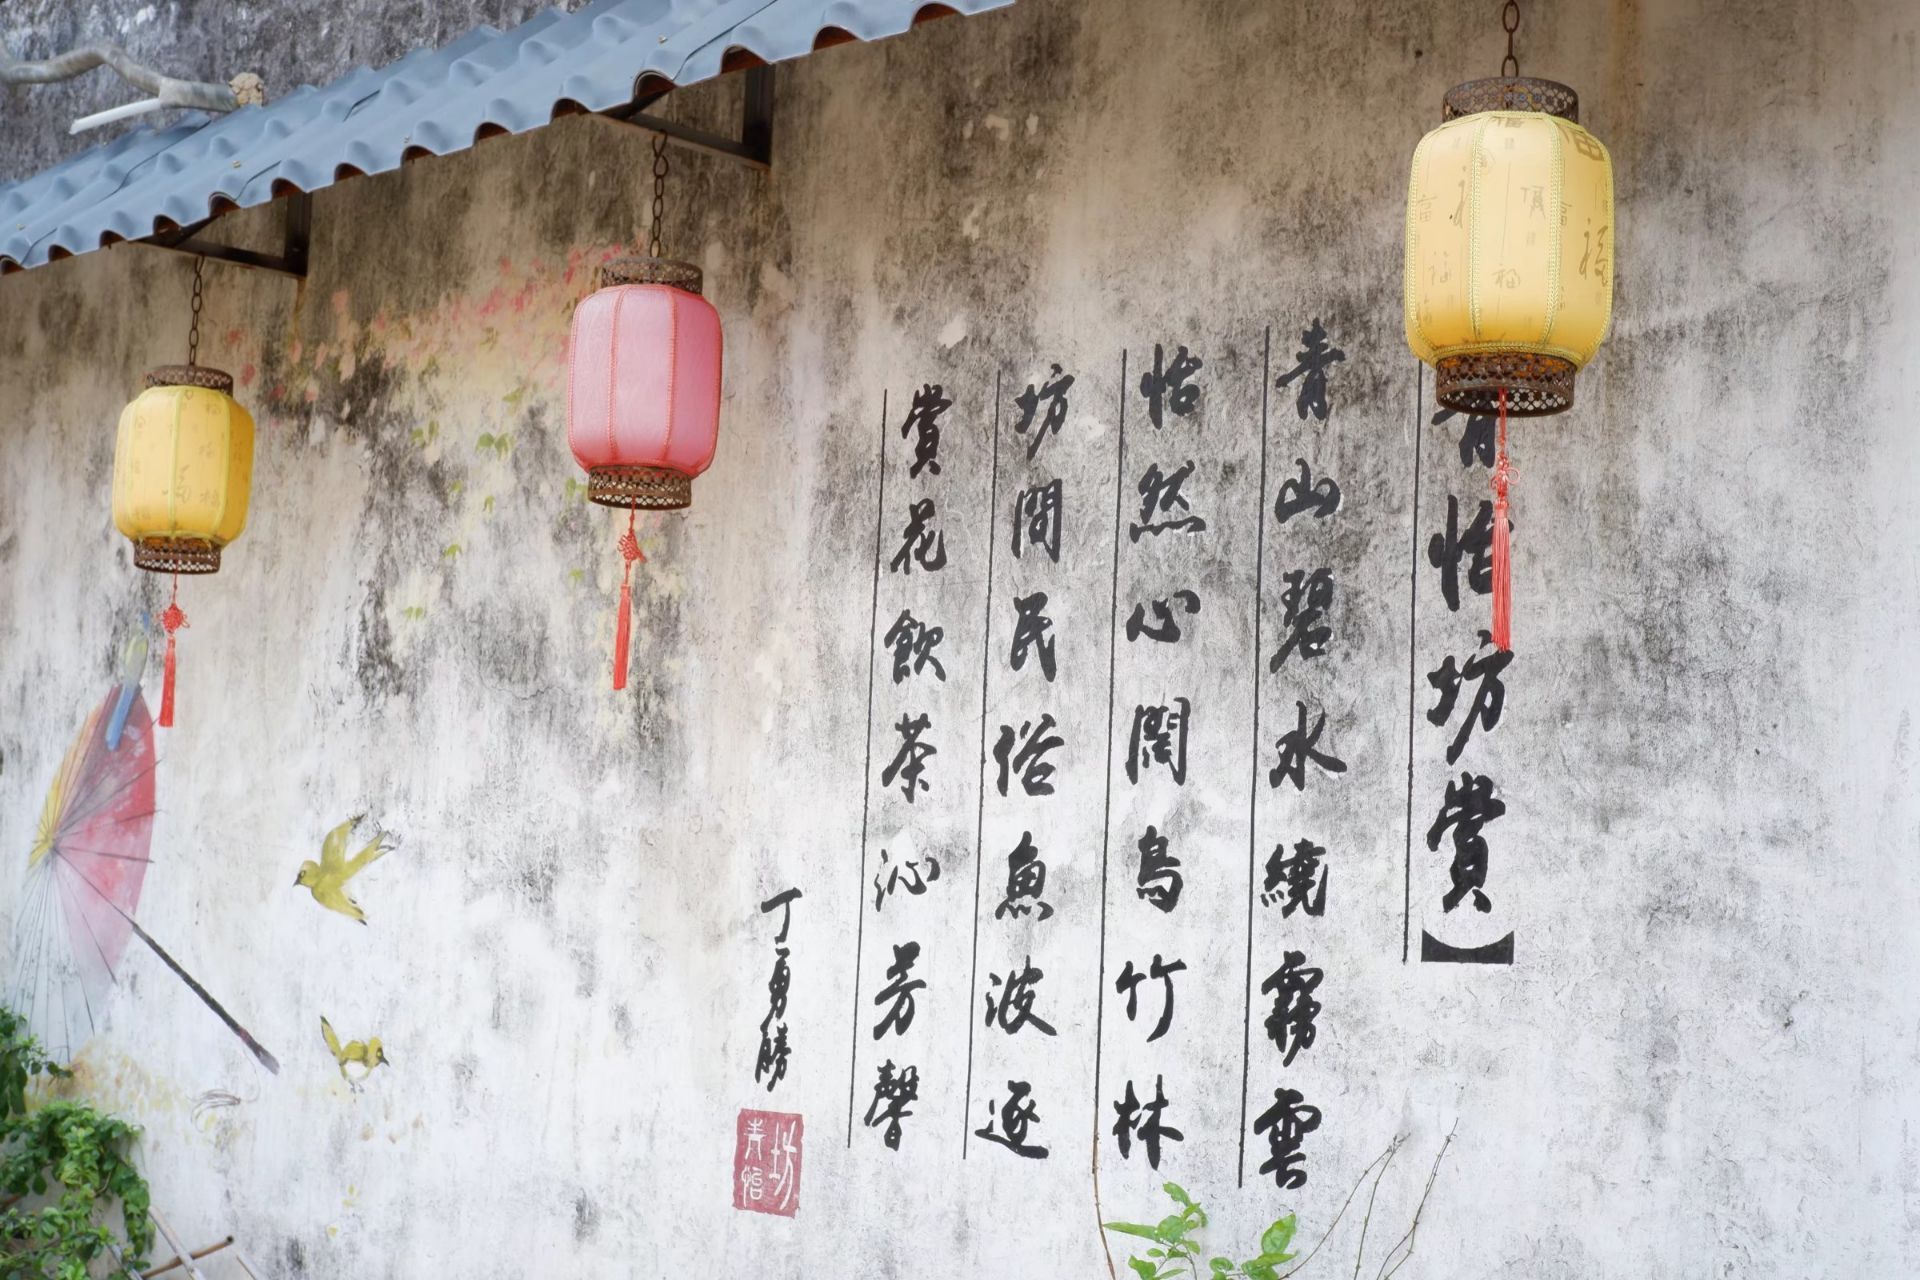 青怡坊賞】
青山碧水繞霧雲
怡然心闊鳥竹林
坊間民俗魚波逐
賞花飲茶沁芳馨
丁勇勝
青怡坊
福